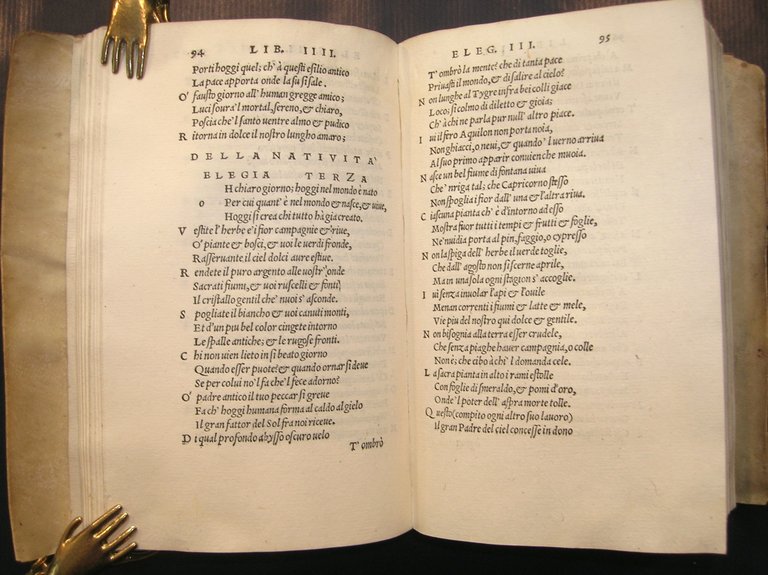 94 LIB. IIII.
Porti hoggi quel; ch' à questi esilio antico
La pace apporta onde la su si sale.
O' fausto giorno all' human gregge amico;
Luci soura'l mortal, sereno, & chiaro,
Poscia che'l santo uentre almo & pudico
Ritorna in dolce il nostro lungho amaro;
DELLA NATIVITA'
ELEGIA TERZA
OH chiaro giorno; hoggi nel mondo è nato
Per cui quant' è nel mondo & nasce, & uiue,
Hoggi si crea chi tutto hà gia creato.
Vestite l' herbe e i fior campagnie & riue,
O' piante & bosci, & uoi le uerdi fronde,
Rasseruante il ciel dolci aure estiue.
Rendete il puro argento alle uostr' onde
Sacrati fiumi, & uoi ruscelli & fonti
Il cristallo gentil che' nuoi s' asconde.
Spogliate il biancho & uoi canuti monti,
Et d'un piu bel color cingete intorno
Le spalle antiche; & le rugose fronti.
Chi non uien lieto in si beato giorno
Quando esser puote? & quando ornar si deue
Se per colui no'l fa che'l fece adorno?
O' padre antico il tuo peccar si greue
Fa ch' hoggi humana forma al caldo al gielo
Il gran fattor del Sol fra noi riceue.
Di qual profondo abysso oscuro uelo
T' ombrò
ELEG. III. 95
T' ombrò la mente? che di tania pace
Priuasti il mondo, & di salire al cielo?
Non lunghe al Tygre infra bei colli giace
Loco; si colmo di diletto & gioia;
Ch' à chi ne parla pur null' altro piace.
Iui il fero Aquilon non porta noia,
Non ghiacci, o neui, & quando' l uerno arriua
Al suo primo apparir conuien che muoia.
Nasce un bel fiume di fontana uiua
Che' nriga tal; che Capricorno stesso
Non spoglia i fior dall' una & l'altra riua.
Ciascuna pianta ch' è d'intorno ad esso
Mostra fuor tutti i tempi & frutti & foglie,
Ne' nuidia porta al pin, faggio, o cypresso
Non la spiga dell' herbe il uerde toglie,
Che dall' agosto non si scerne aprile,
Ma in una sola ogni stagion s' accoglie.
Iui senza inuolar l'api & l'ouile
Menan correnti i fiumi & latte & mele,
Vie piu del nostro qui dolce & gentile.
Non bisognia alla terra esser crudele,
Che senza piaghe hauer campagnia, o colle
Non è; che cibo à chi'l domanda cele.
La sacra pianta in alto i rami estolle
Con foglie di smeraldo, & pomi d'oro,
Onde'l poter dell' aspra morte tolle.
Questo (compito ogni altro suo lauoro)
Il gran Padre del ciel concesse in dono